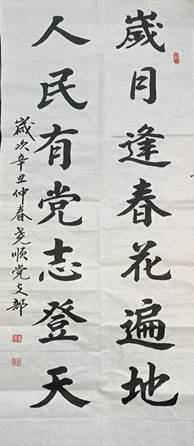 歲月逢春花遍地
人民有党志登天
歲次辛丑仲春尧顺党支部